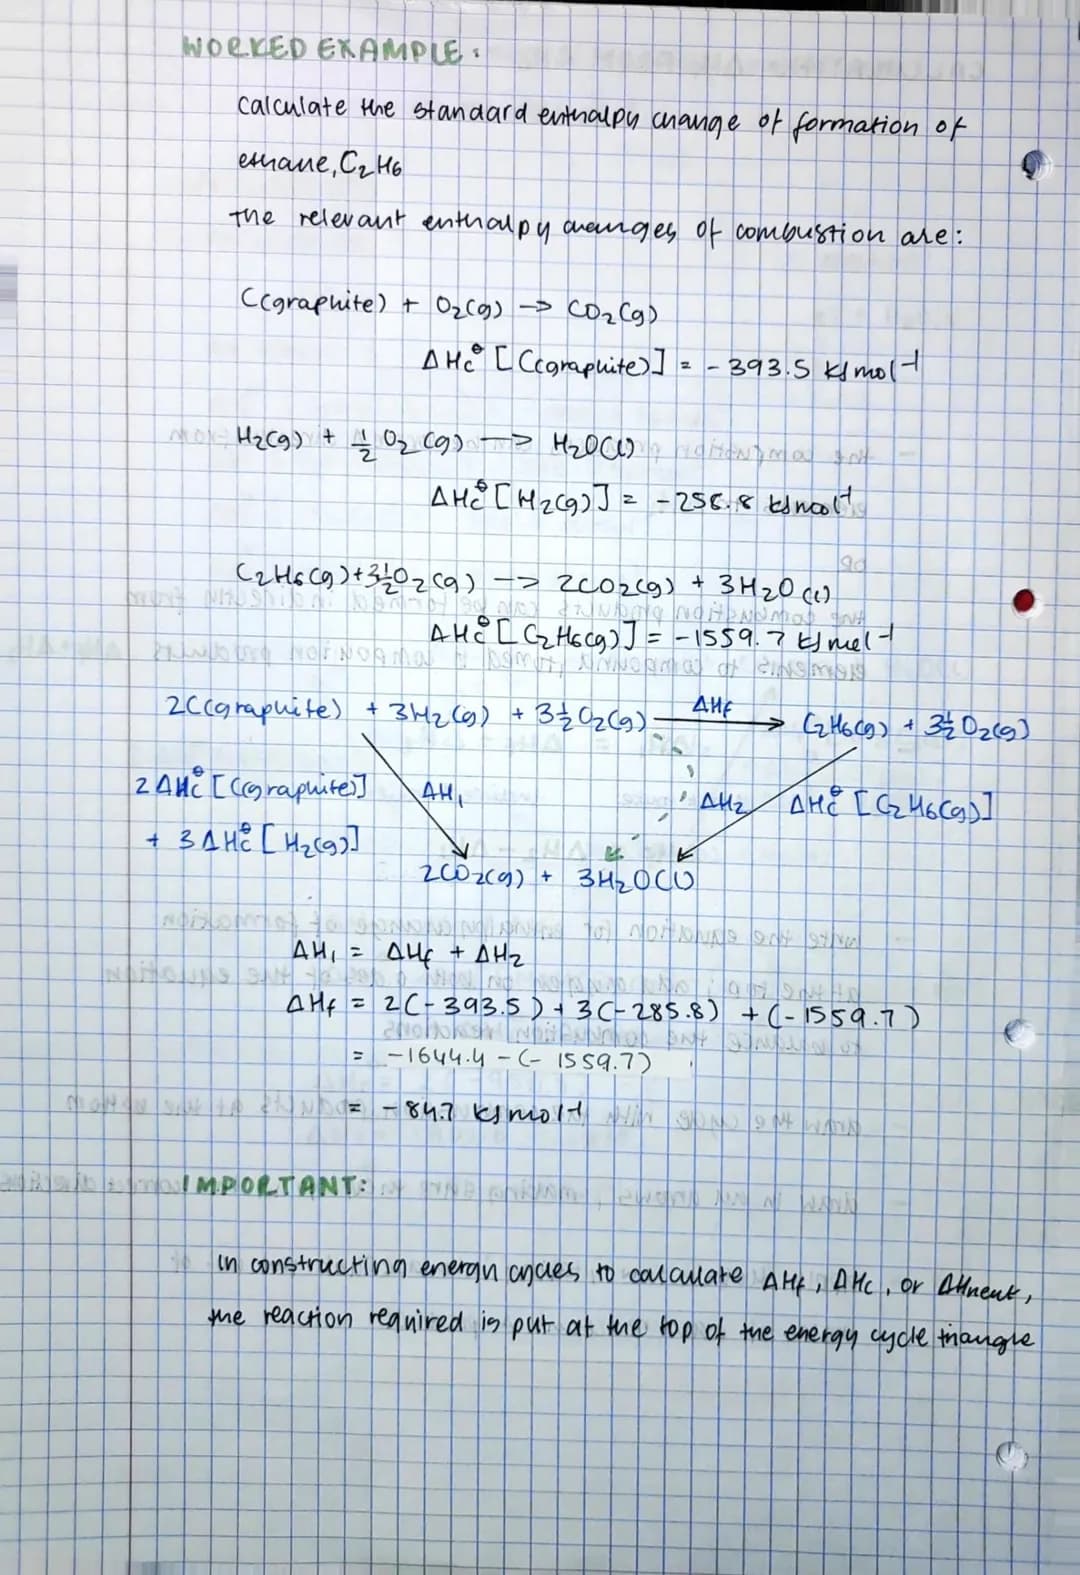 WORKED EXAMPLE:
calculate the standard enthalpy change of formation of
ethane, C₂H₆
the relevant enthalpy changes of combustion are:
C(graphite) + O₂(g) → CO₂(g)
ΔHc⦵ [C(graphite)] = -393.5 kJmol⁻¹
H₂(g) + ½ O₂(g) → H₂O(l)
ΔHc⦵ [H₂(g)] = kJmol⁻¹
C₂H₆(g) + 3½O₂(g) → 2CO₂(g) + 3H₂O(l)
ΔHc⦵ [C₂H₆(g)] = -1559.7 kJmol⁻¹
2C(graphite) + 3H₂(g) + 3½O₂(g) ΔHf → C₂H₆(g) + 3½O₂(g)
2ΔHc⦵ [C(graphite)] ΔH₁ ΔH₂ ΔHc⦵ [C₂H₆(g)]
+ 3ΔHc⦵ [H₂(g)]
2CO₂(g) + 3H₂O(l)
ΔH₁ = ΔHf + ΔH₂
ΔHf = 2(-393.5) + 3(-285.8) + (-1559.7)
= -1644.4 - (-1559.7)
= -84.7 kJmol⁻¹
IMPORTANT:
in constructing energy cycles to calculate ΔHf, ΔHc, or ΔHneut,
the reaction required is put at the top of the energy cycle triangle